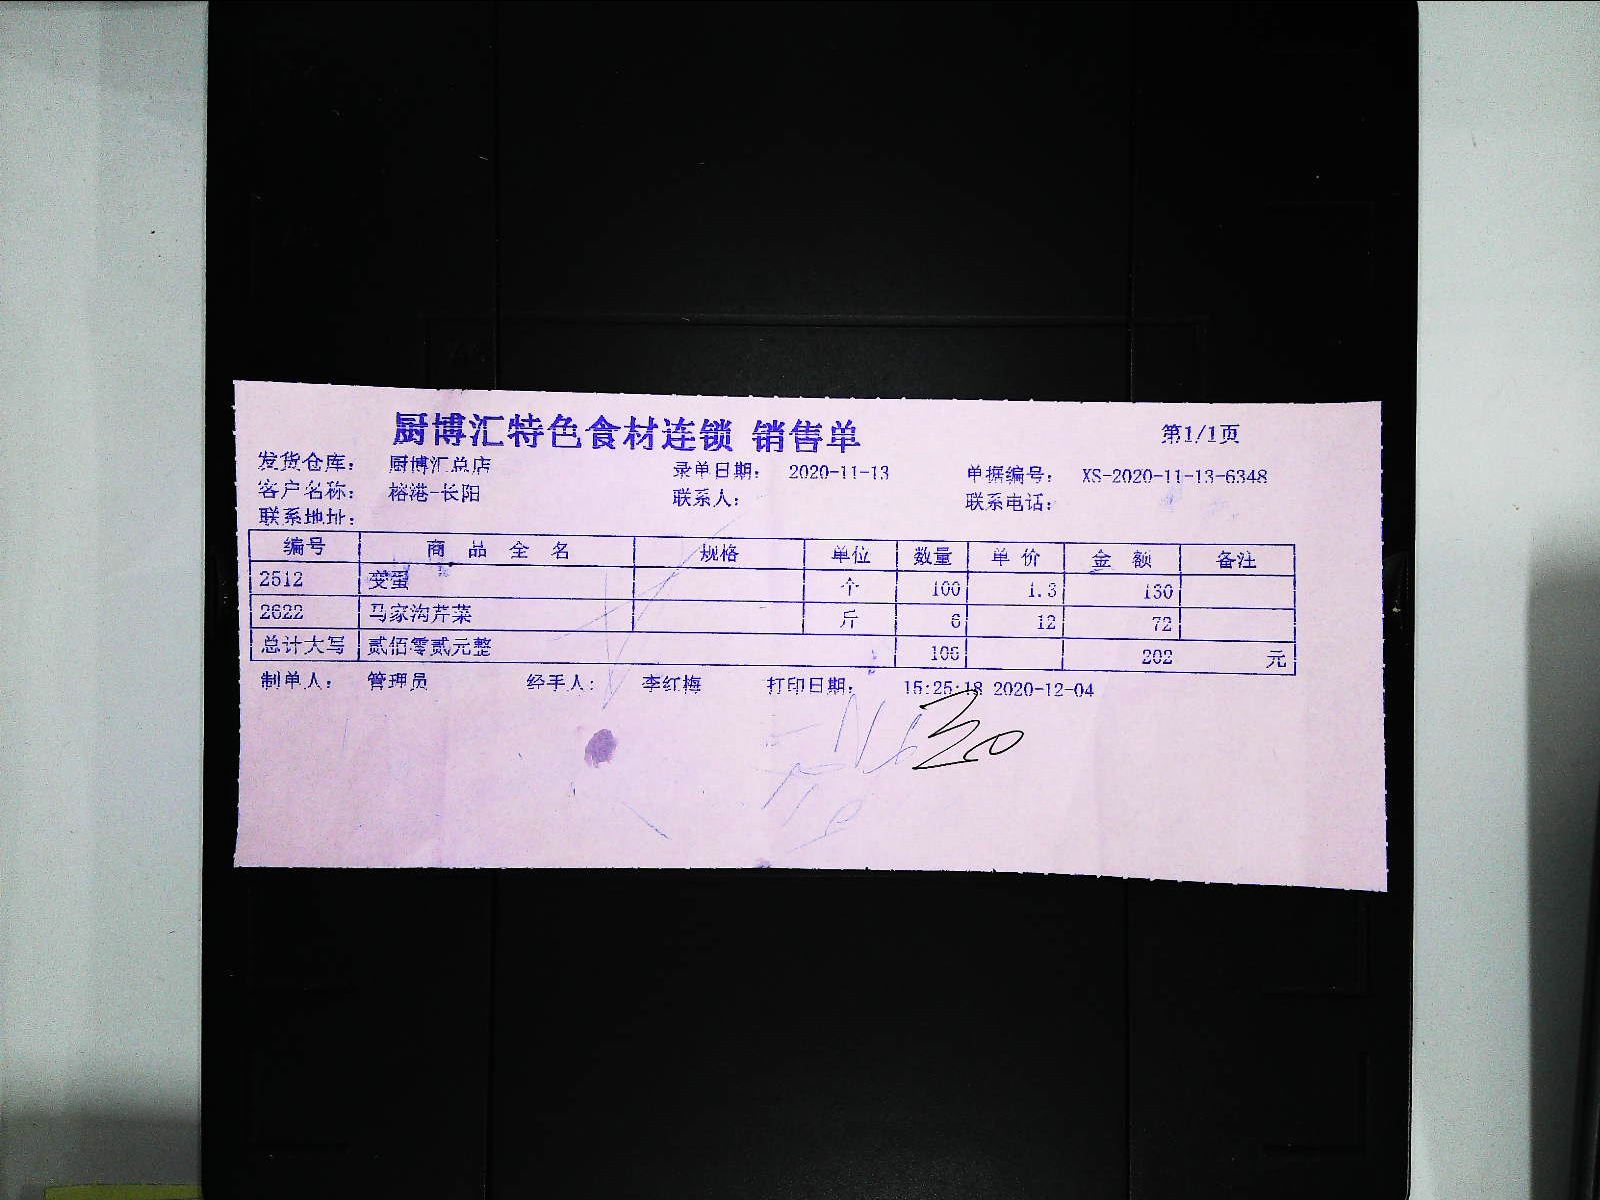 厨博汇特色食材连锁 销售单 第1/1页
发货仓库: 厨博汇总店 录单日期: 2020-11-13 单据编号: XS-2020-11-13-6348
客户名称: 榕港-长阳 联系人: 联系电话:
联系地址:
编号 商品全名 规格 单位 数量 单价 金额 备注
2512 变蛋 个 100 1.3 130
2622 马家沟芹菜 斤 6 12 72
总计大写 贰佰零贰元整 106 202 元
制单人: 管理员 经手人: 李红梅 打印日期: 15:25:18 2020-12-04